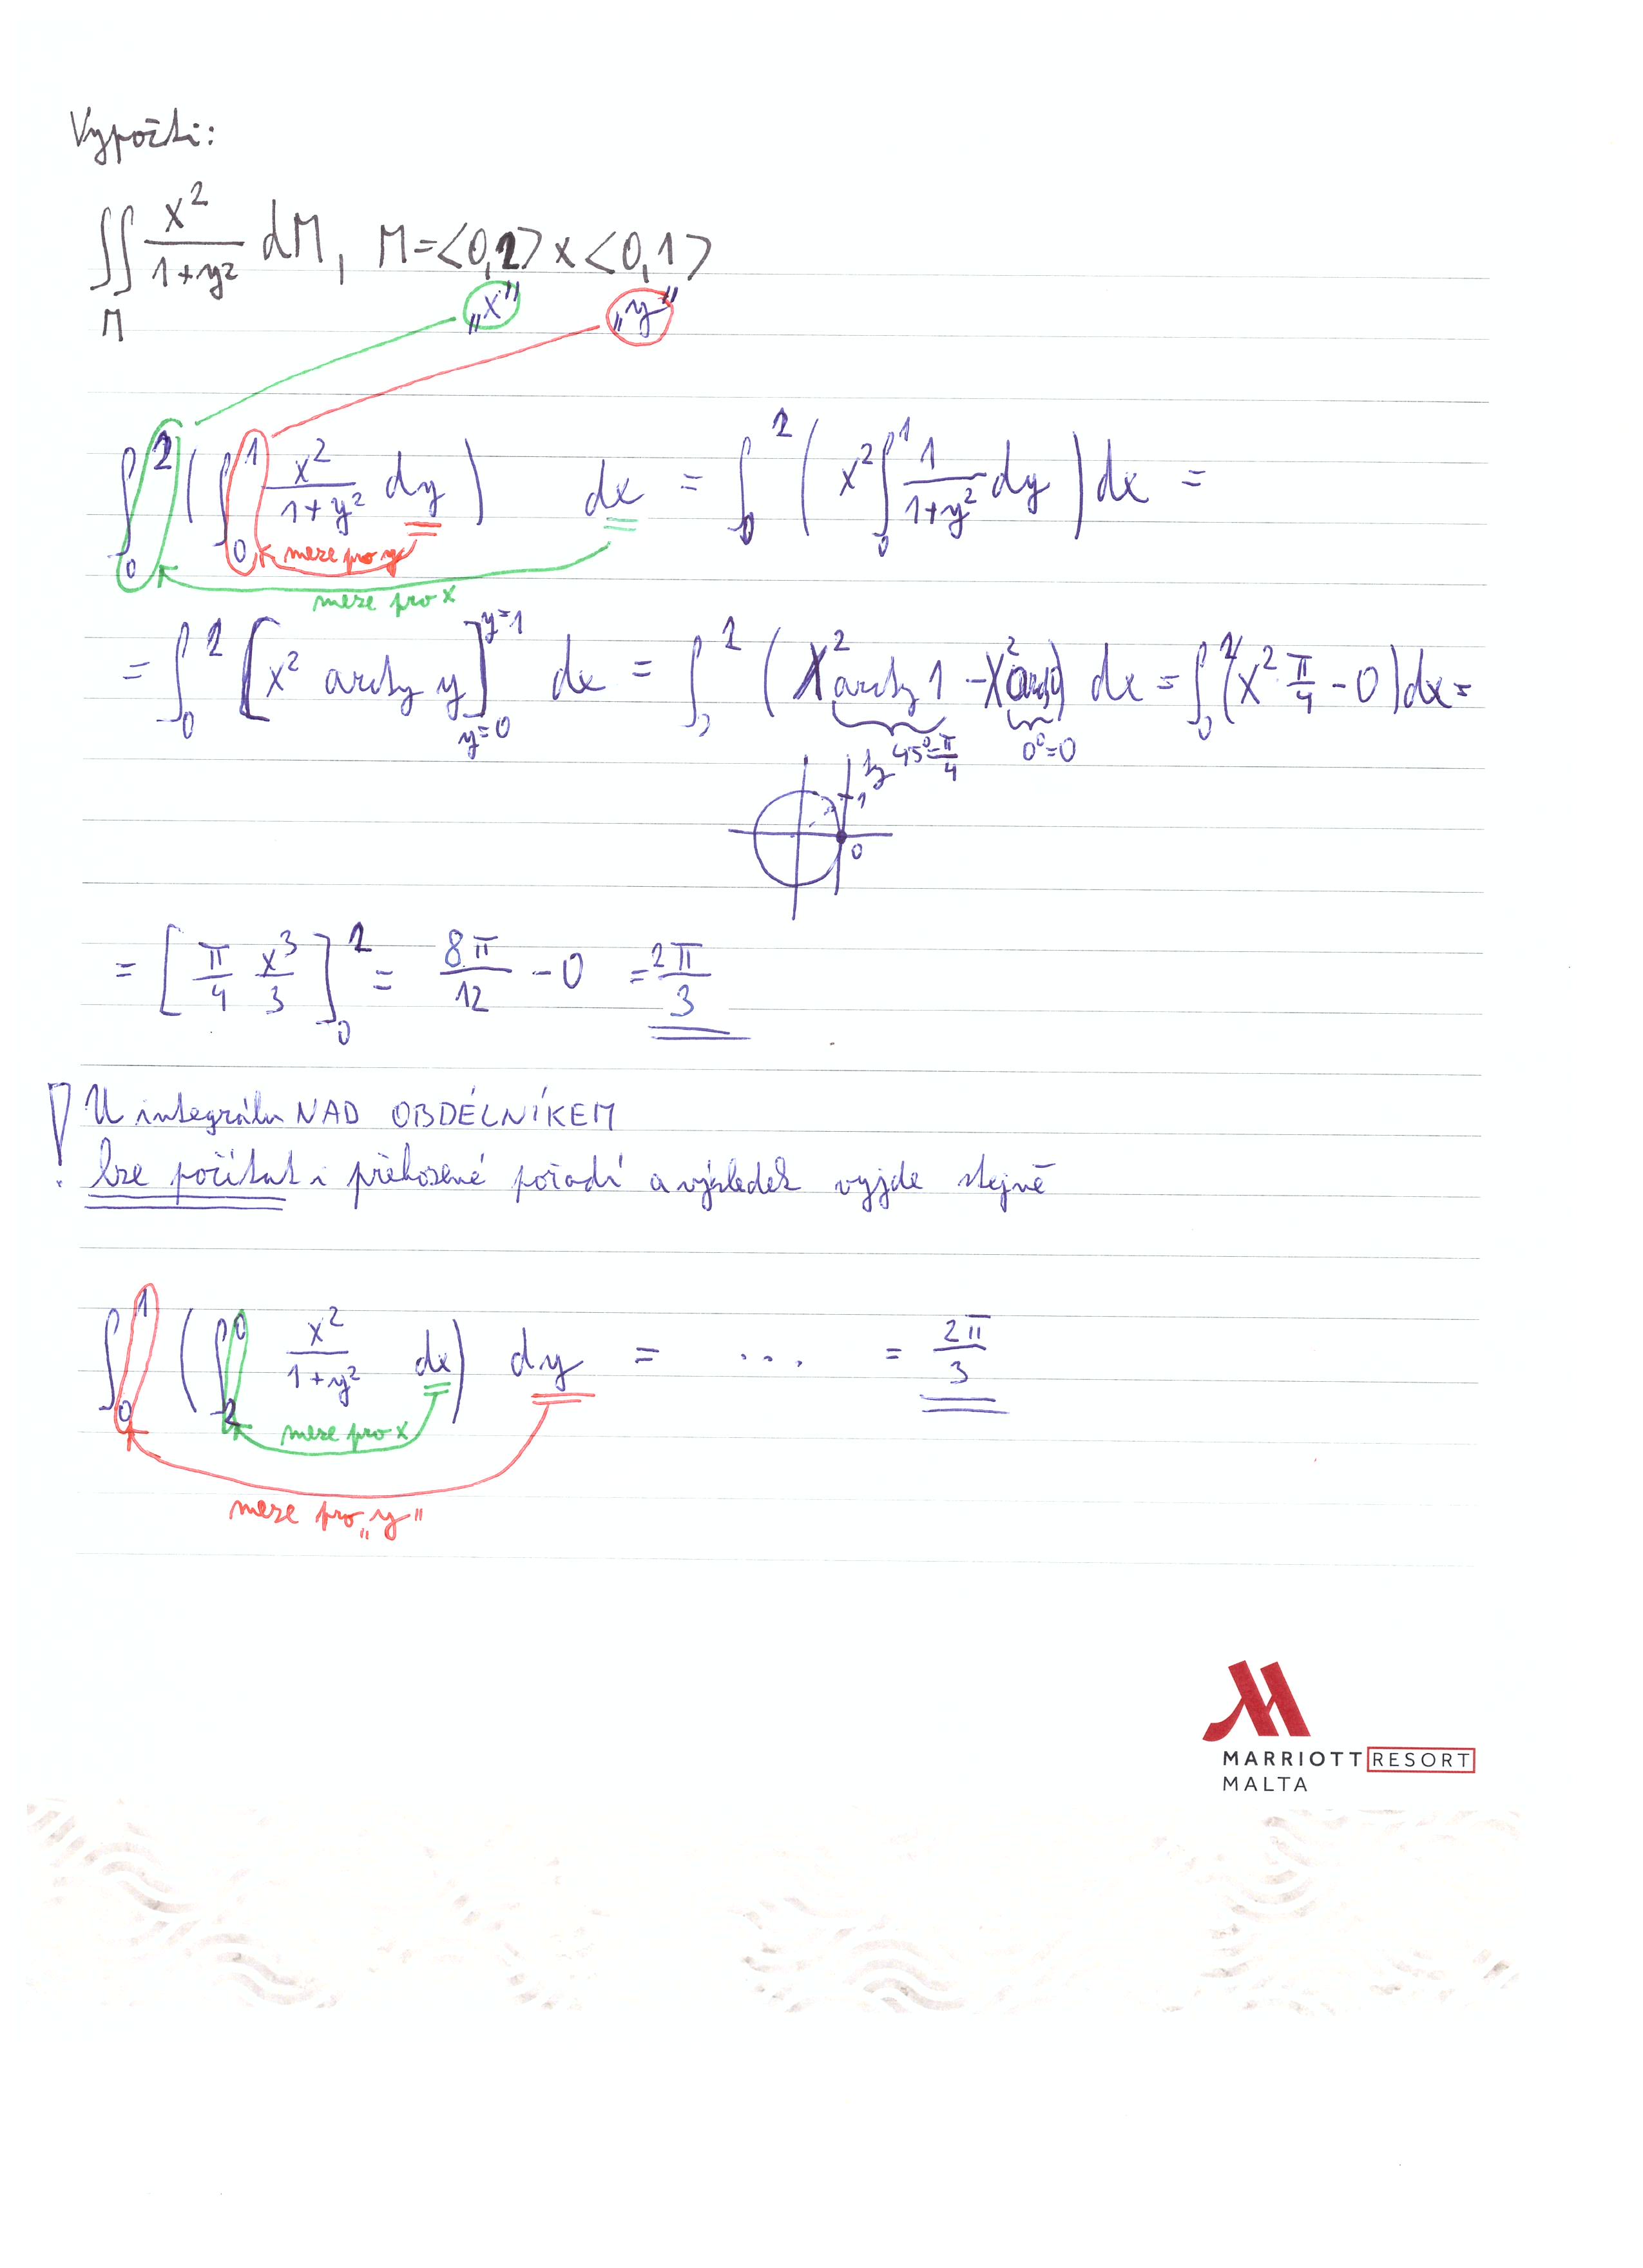 Vypočti:
∬_M x²/(1+y²) dM, M=<0,2>x<0,1>
„x" „y"
∫_0^2 (∫_0^1 x²/(1+y²) dy) dx = ∫_0^2 (x² ∫_0^1 1/(1+y²) dy) dx =
meze pro y
meze pro x
= ∫_0^2 [x² arctg y]_{y=0}^{y=1} dx = ∫_0^2 (x² arctg 1 - x² arctg 0) dx = ∫_0^2 (x² π/4 - 0) dx =
45°=π/4 0°=0
tg
1
0
= [π/4 x³/3]_0^2 = 8π/12 - 0 = 2π/3
! U integrálu NAD OBDÉLNÍKEM
lze počítat i přehozené pořadí a výsledek vyjde stejně
∫_0^1 (∫_2^0 x²/(1+y²) dx) dy = ... = 2π/3
meze pro x
meze pro „y"
MARRIOTT RESORT
MALTA